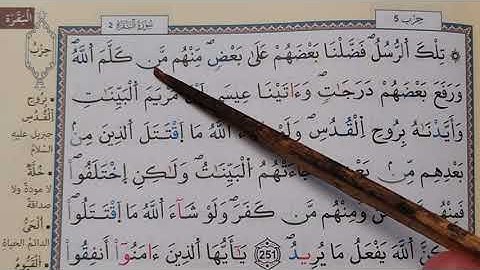 البَقَرَة
سُورَةُ البَقَرَةِ 2
حِزْب 5
تِلْكَ اَ۬لرُّسُلُ فَضَّلْنَا بَعْضَهُمْ عَلَىٰ بَعْضٖ مِّنْهُم مَّن كَلَّمَ اَ۬للَّهُ
وَرَفَعَ بَعْضَهُمْ دَرَجَٰتٖ وَءَاتَيْنَا عِيسَى مَرْيَمَ اَ۬لْبَيِّنَٰتِ
وَأَيَّدْنَٰهُ بِرُوحِ اِ۬لْقُدُسِ وَلَوْ اَ۬للَّهُ مَا اَ۪قْتَتَلَ اَ۬لذِينَ مِنۢ
بَعْدِهِم مِّنۢ جَآءَتْهُمُ اُ۬لْبَيِّنَٰتُ وَلَٰكِنِ اِ۪خْتَلَفُواْ
فَمِنْهُم وَمِنْهُم مَّن كَفَرَ وَلَوْ شَآءَ اَ۬للَّهُ مَا اَ۪قْتَتَلُواْ
اَ۬للَّهَ يَفْعَلُ مَا يُرِيدُ 251 يَٰٓأَيُّهَا اَ۬لذِينَ ءَامَنُوٓاْ أَنفِقُواْ
حِزْبٌ
بِرُوحِ
الْقُدُسِ
جبريل عليه
السّلام
خُلَّةٌ
لا مودّة ولا
صداقة
الْحَيُّ
الدائم الحياة
الْقَيُّومُ